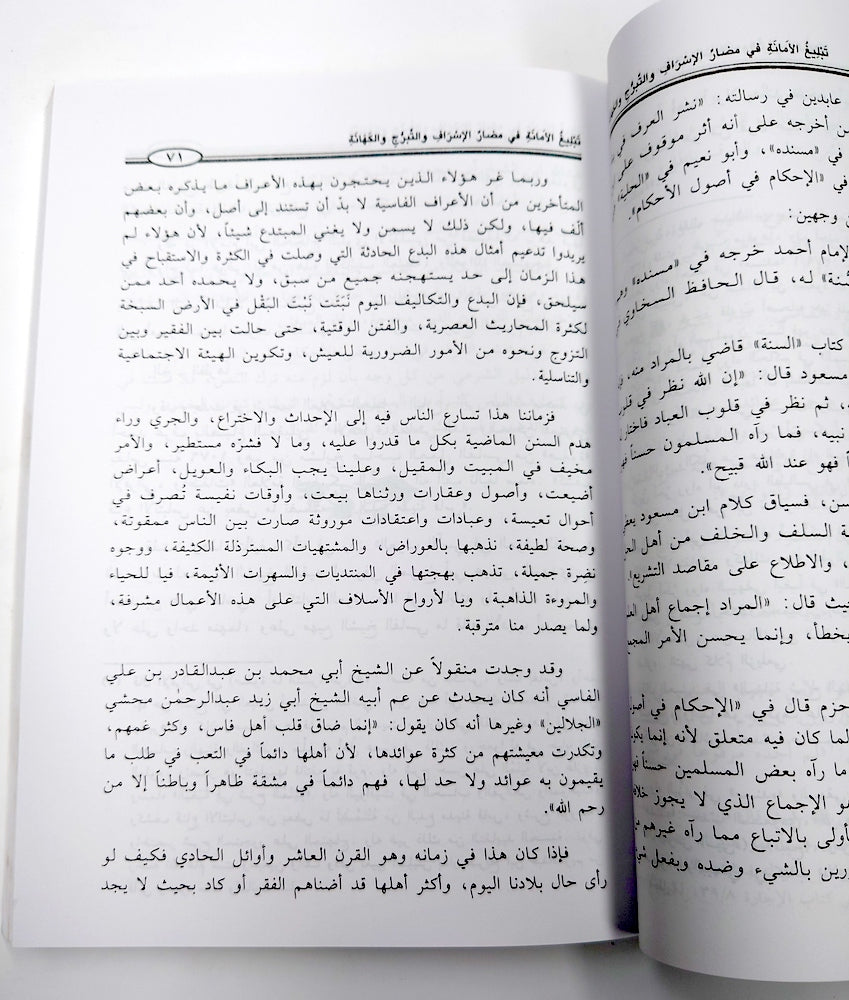 تَبْلِيغُ الأمَانَةِ في مضارُ الإسْرَافِ والتَّبَرُّجِ والكَهَانَةِ
٧١
وربما غر هؤلاء الذين يحتجون بهذه الأعراف ما يذكره بعض
المتأخرين من أن الأعراف الفاسية لا بدّ أن تستند إلى أصل، وأن بعضهم
ألّف فيها، ولكن ذلك لا يسمن ولا يغني المبتدع شيئاً، لأن هؤلاء لم
يريدوا تدعيم أمثال هذه البدع الحادثة التي وصلت في الكثرة والاستقباح في
هذا الزمان إلى حد يستهجنه جميع من سبق، ولا يحمده أحد ممن
سيلحق، فإن البدع والتكاليف اليوم نَبَتَت نَبْتَ البَقْل في الأرض السبخة
لكثرة المحاريث العصرية، والفتن الوقتية، حتى حالت بين الفقير وبين
التزوج ونحوه من الأمور الضرورية للعيش، وتكوين الهيئة الاجتماعية
والتناسلية.
فزماننا هذا تسارع الناس فيه إلى الإحداث والاختراع، والجري وراء
هدم السنن الماضية بكل ما قدروا عليه، وما لا فشرّه مستطير، والأمر
مخيف في المبيت والمقيل، وعلينا يجب البكاء والعويل، أعراض
أضيعت، وأصول وعقارات ورثناها بيعت، وأوقات نفيسة تُصرف في
أحوال تعيسة، وعبادات واعتقادات موروثة صارت بين الناس ممقوتة،
وصحة لطيفة، نذهبها بالعوراض، والمشتهيات المسترذلة الكثيفة، ووجوه
نضِرة جميلة، تذهب بهجتها في المنتديات والسهرات الأثيمة، فيا للحياء
والمروءة الذاهبة، ويا لأرواح الأسلاف التي على هذه الأعمال مشرفة،
ولما يصدر منا مترقبة.
وقد وجدت منقولاً عن الشيخ أبي محمد بن عبدالقادر بن علي
الفاسي أنه كان يحدث عن عم أبيه الشيخ أبي زيد عبدالرحمٰن محشي
«الجلالين» وغيرها أنه كان يقول: «إنما ضاق قلب أهل فاس، وكثر غمهم،
وتكدرت معيشتهم من كثرة عوائدها، لأن أهلها دائماً في التعب في طلب ما
يقيمون به عوائد ولا حد لها، فهم دائماً في مشقة ظاهراً وباطناً إلا من
رحم الله».
فإذا كان هذا في زمانه وهو القرن العاشر وأوائل الحادي فكيف لو
رأى حال بلادنا اليوم، وأكثر أهلها قد أضناهم الفقر أو كاد بحيث لا يجد
تَبْلِيغُ الأمَانَةِ في مضارُ الإسْرَافِ والتَّبَرُّجِ
عابدين في رسالته: «نشر العرف في
من أخرجه على أنه أثر موقوف على
في «مسنده»، وأبو نعيم في «الحلية»
في «الإحكام في أصول الأحكام».
وجهين:
الإمام أحمد خرجه في «مسنده»
له، قال الحافظ السخاوي
كتاب «السنة» قاضي بالمراد منه،
مسعود قال: «إن الله نظر في قلوب
، ثم نظر في قلوب العباد فاختار
نبيه، فما رآه المسلمون حسناً
فهو عند الله قبيح».
فسياق كلام ابن مسعود
السلف والخلف من أهل
، والاطلاع على مقاصد التشريع.
قال: «المراد إجماع أهل
يخطأ، وإنما يحسن الأمر
حزم قال في «الإحكام في
لما كان فيه متعلق لأنه إنما
ما رآه بعض المسلمين حسناً
هو الإجماع الذي لا يجوز
بالاتباع مما رآه غيرهم
بالشيء وضده وبفعل